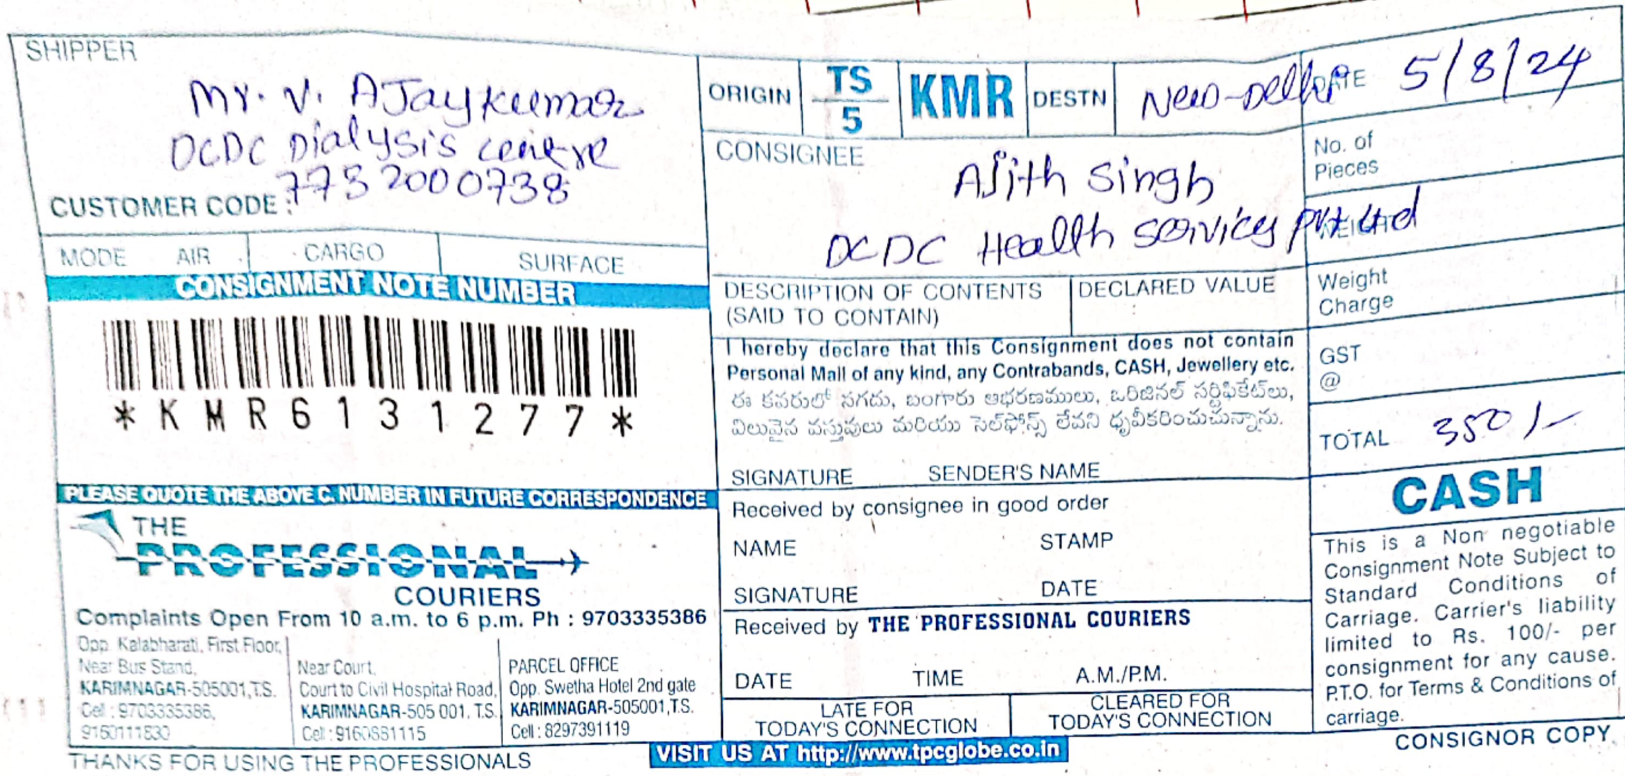 SHIPPER
Mr. V. AJaykumar
DCDC Dialysis centre
7732000738
CUSTOMER CODE :
MODE AIR CARGO SURFACE
CONSIGNMENT NOTE NUMBER
*KMR6131277*
PLEASE QUOTE THE ABOVE C. NUMBER IN FUTURE CORRESPONDENCE
THE
PROFESSIONAL
COURIERS
Complaints Open From 10 a.m. to 6 p.m. Ph : 9703335386
Opp. Kalabharati, First Floor,
Near Bus Stand,
KARIMNAGAR-505001,T.S.
Cell : 9703335386,
9160111830
Near Court,
Court to Civil Hospital Road,
KARIMNAGAR-505 001. T.S.
Cell : 9160881115
PARCEL OFFICE
Opp. Swetha Hotel 2nd gate
KARIMNAGAR-505001,T.S.
Cell : 8297391119
THANKS FOR USING THE PROFESSIONALS
ORIGIN TS/5 KMR DESTN New-Delhi
DATE 5/8/24
CONSIGNEE
Ajith Singh
DCDC Health services Pvt Ltd
DESCRIPTION OF CONTENTS
(SAID TO CONTAIN)
DECLARED VALUE
I hereby declare that this Consignment does not contain
Personal Mall of any kind, any Contrabands, CASH, Jewellery etc.
ఈ కవరులో నగదు, బంగారు ఆభరణములు, ఒరిజినల్ సర్టిఫికేట్‌లు,
విలువైన వస్తువులు మరియు సెల్‌ఫోన్స్ లేవని ధృవీకరించుచున్నాను.
SIGNATURE SENDER'S NAME
Received by consignee in good order
NAME STAMP
SIGNATURE DATE
Received by THE PROFESSIONAL COURIERS
DATE TIME A.M./P.M.
LATE FOR
TODAY'S CONNECTION
CLEARED FOR
TODAY'S CONNECTION
VISIT US AT http://www.tpcglobe.co.in
No. of
Pieces
WEIGHT
Weight
Charge
GST
@
TOTAL 350/-
CASH
This is a Non negotiable
Consignment Note Subject to
Standard Conditions of
Carriage. Carrier's liability
limited to Rs. 100/- per
consignment for any cause.
P.T.O. for Terms & Conditions of
carriage.
CONSIGNOR COPY